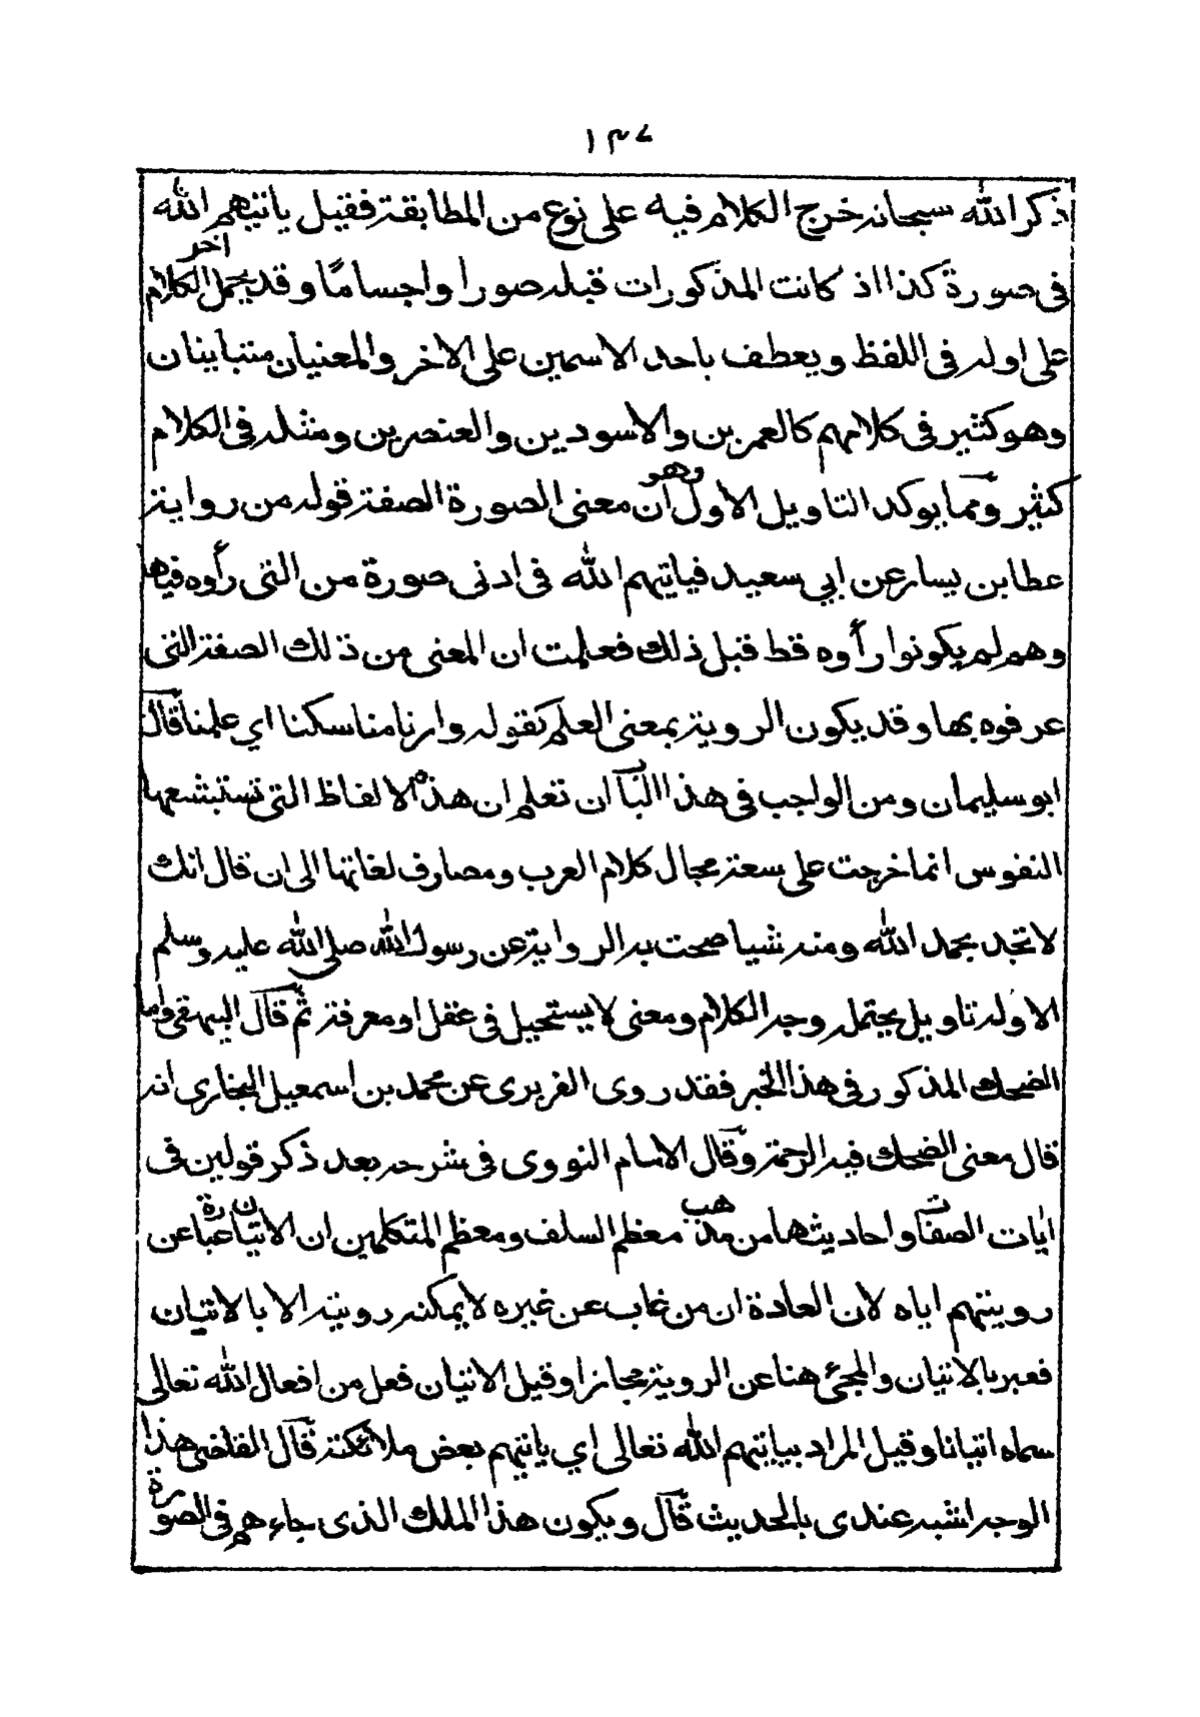 ١٣٧
ذكر الله سبحانه خرج الكلام فيه على نوع من المطابقة فقيل يأتيهم الله
فى صورة كذا اذ كانت المذكورات قبله صورا واجساما وقد يحمل اخر الكلام
على اوله فى اللفظ ويعطف باحد الاسمين على الاخر والمعنيان متباينان
وهو كثير فى كلامهم كالعمرين والاسودين والعنصرين ومثله فى الكلام
كثير ومما يوكد التاويل الاول وهو ان معنى الصورة الصفة قوله من رواية
عطا بن يسار عن ابي سعيد فياتيهم الله فى ادنى صورة من التى رأوه فيها
وهم لم يكونوا رأوه قط قبل ذلك فعلمت ان المعنى من ذلك الصفة التى
عرفوه بها وقد يكون الروية بمعنى العلم كقوله وارنا مناسكنا اي علمنا قال
ابو سليمان ومن الواجب فى هذا الباب ان تعلم ان هذه الالفاظ التى تستبشعها
النفوس انما خرجت على سعة مجال كلام العرب ومصارف لغاتها الى ان قال انك
لا تجد بحمد الله ومنه شيا صحت به الرواية عن رسول الله صلى الله عليه وسلم
الا وله تاويل يحتمله وجه الكلام ومعنى لا يستحيل فى عقل او معرفة ثم قال البيهقى واما
الضحك المذكور فى هذا الخبر فقد روى الفربرى عن محمد بن اسمعيل البخارى انه
قال معنى الضحك فيه الرحمة وقال الامام النووى فى شرحه بعد ذكر قولين فى
ايات الصفات واحاديثها من مذهب معظم السلف ومعظم المتكلمين ان الاتيان عبارة عن
رويتهم اياه لان العادة ان من غاب عن غيره لا يمكنه رويته الا بالاتيان
فعبر بالاتيان والمجئ هنا عن الروية مجازا وقيل الاتيان فعل من افعال الله تعالى
سماه اتيانا وقيل المراد بياتيهم الله تعالى اي ياتيهم بعض ملائكته قال القاضى هذا
الوجه اشبه عندى بالحديث قال ويكون هذا الملك الذى جاءهم فى الصورة